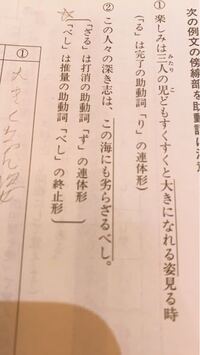 次の例文の傍線部を助動詞に注意
① 楽しみは三人の児どもすくすくと大きになれる姿見る時
みたり
こ
(「る」は完了の助動詞「り」の連体形)
② この人々の深き志は、この海にも劣らざるべし。
「ざる」は打消の助動詞「ず」の連体形
「べし」は推量の助動詞「べし」の終止形
①